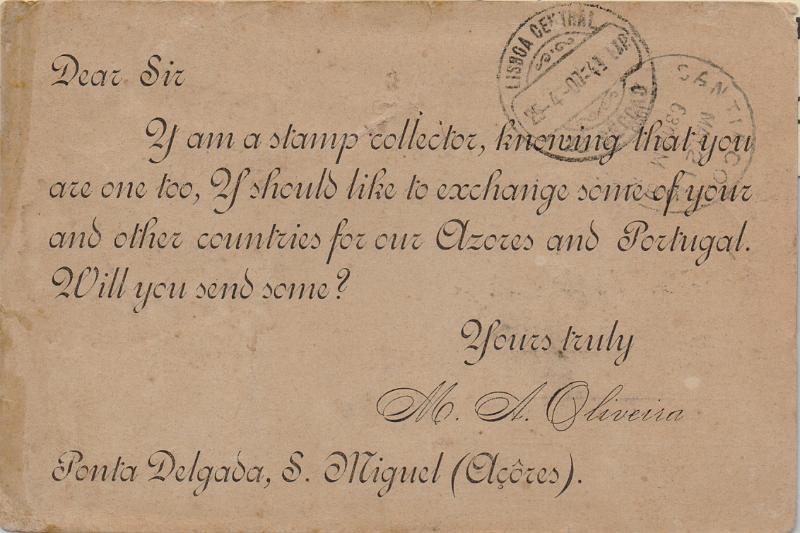 Dear Sir
Y am a stamp collector, knowing that you
are one too, Y should like to exchange some of your
and other countries for our Azores and Portugal.
Will you send some?
Yours truly
M. A. Oliveira
Ponta Delgada, S. Miguel (Açôres).
LISBOA CENTRAL